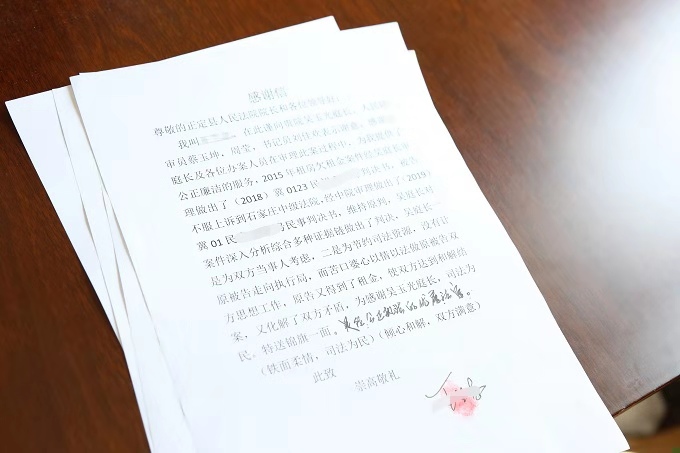 感谢信
尊敬的正定县人民法院院长和各级领导好
我叫 ，在此谨向贵院吴玉光庭长、人民陪
审员蔡玉坤，周莹，书记员刘佳业表示谢意。感谢
庭长及各位办案人员在审理此案过程中，为我提供了
公正廉洁的服务，2015年租房欠租金案件经吴庭长审
理做出了（2018）冀0123民 判决书，被告
不服上诉到石家庄中级法院，经中院审理做出了（2019）
冀01民 民事判决书，维持原判，吴庭长对
案件深入分析综合多种证据链做出了判决，吴庭长一
是为双方当事人考虑，二是为节约司法资源，没有让
原被告走向执行局，而苦口婆心以情以法做原被告双
方思想工作，原告又得到了租金，使双方达到和解结
案，又化解了双方矛盾，为感谢吴玉光庭长，司法为
民。特送锦旗一面。
（铁面柔情，司法为民）（倾心和解，双方满意）
此致
崇高敬礼